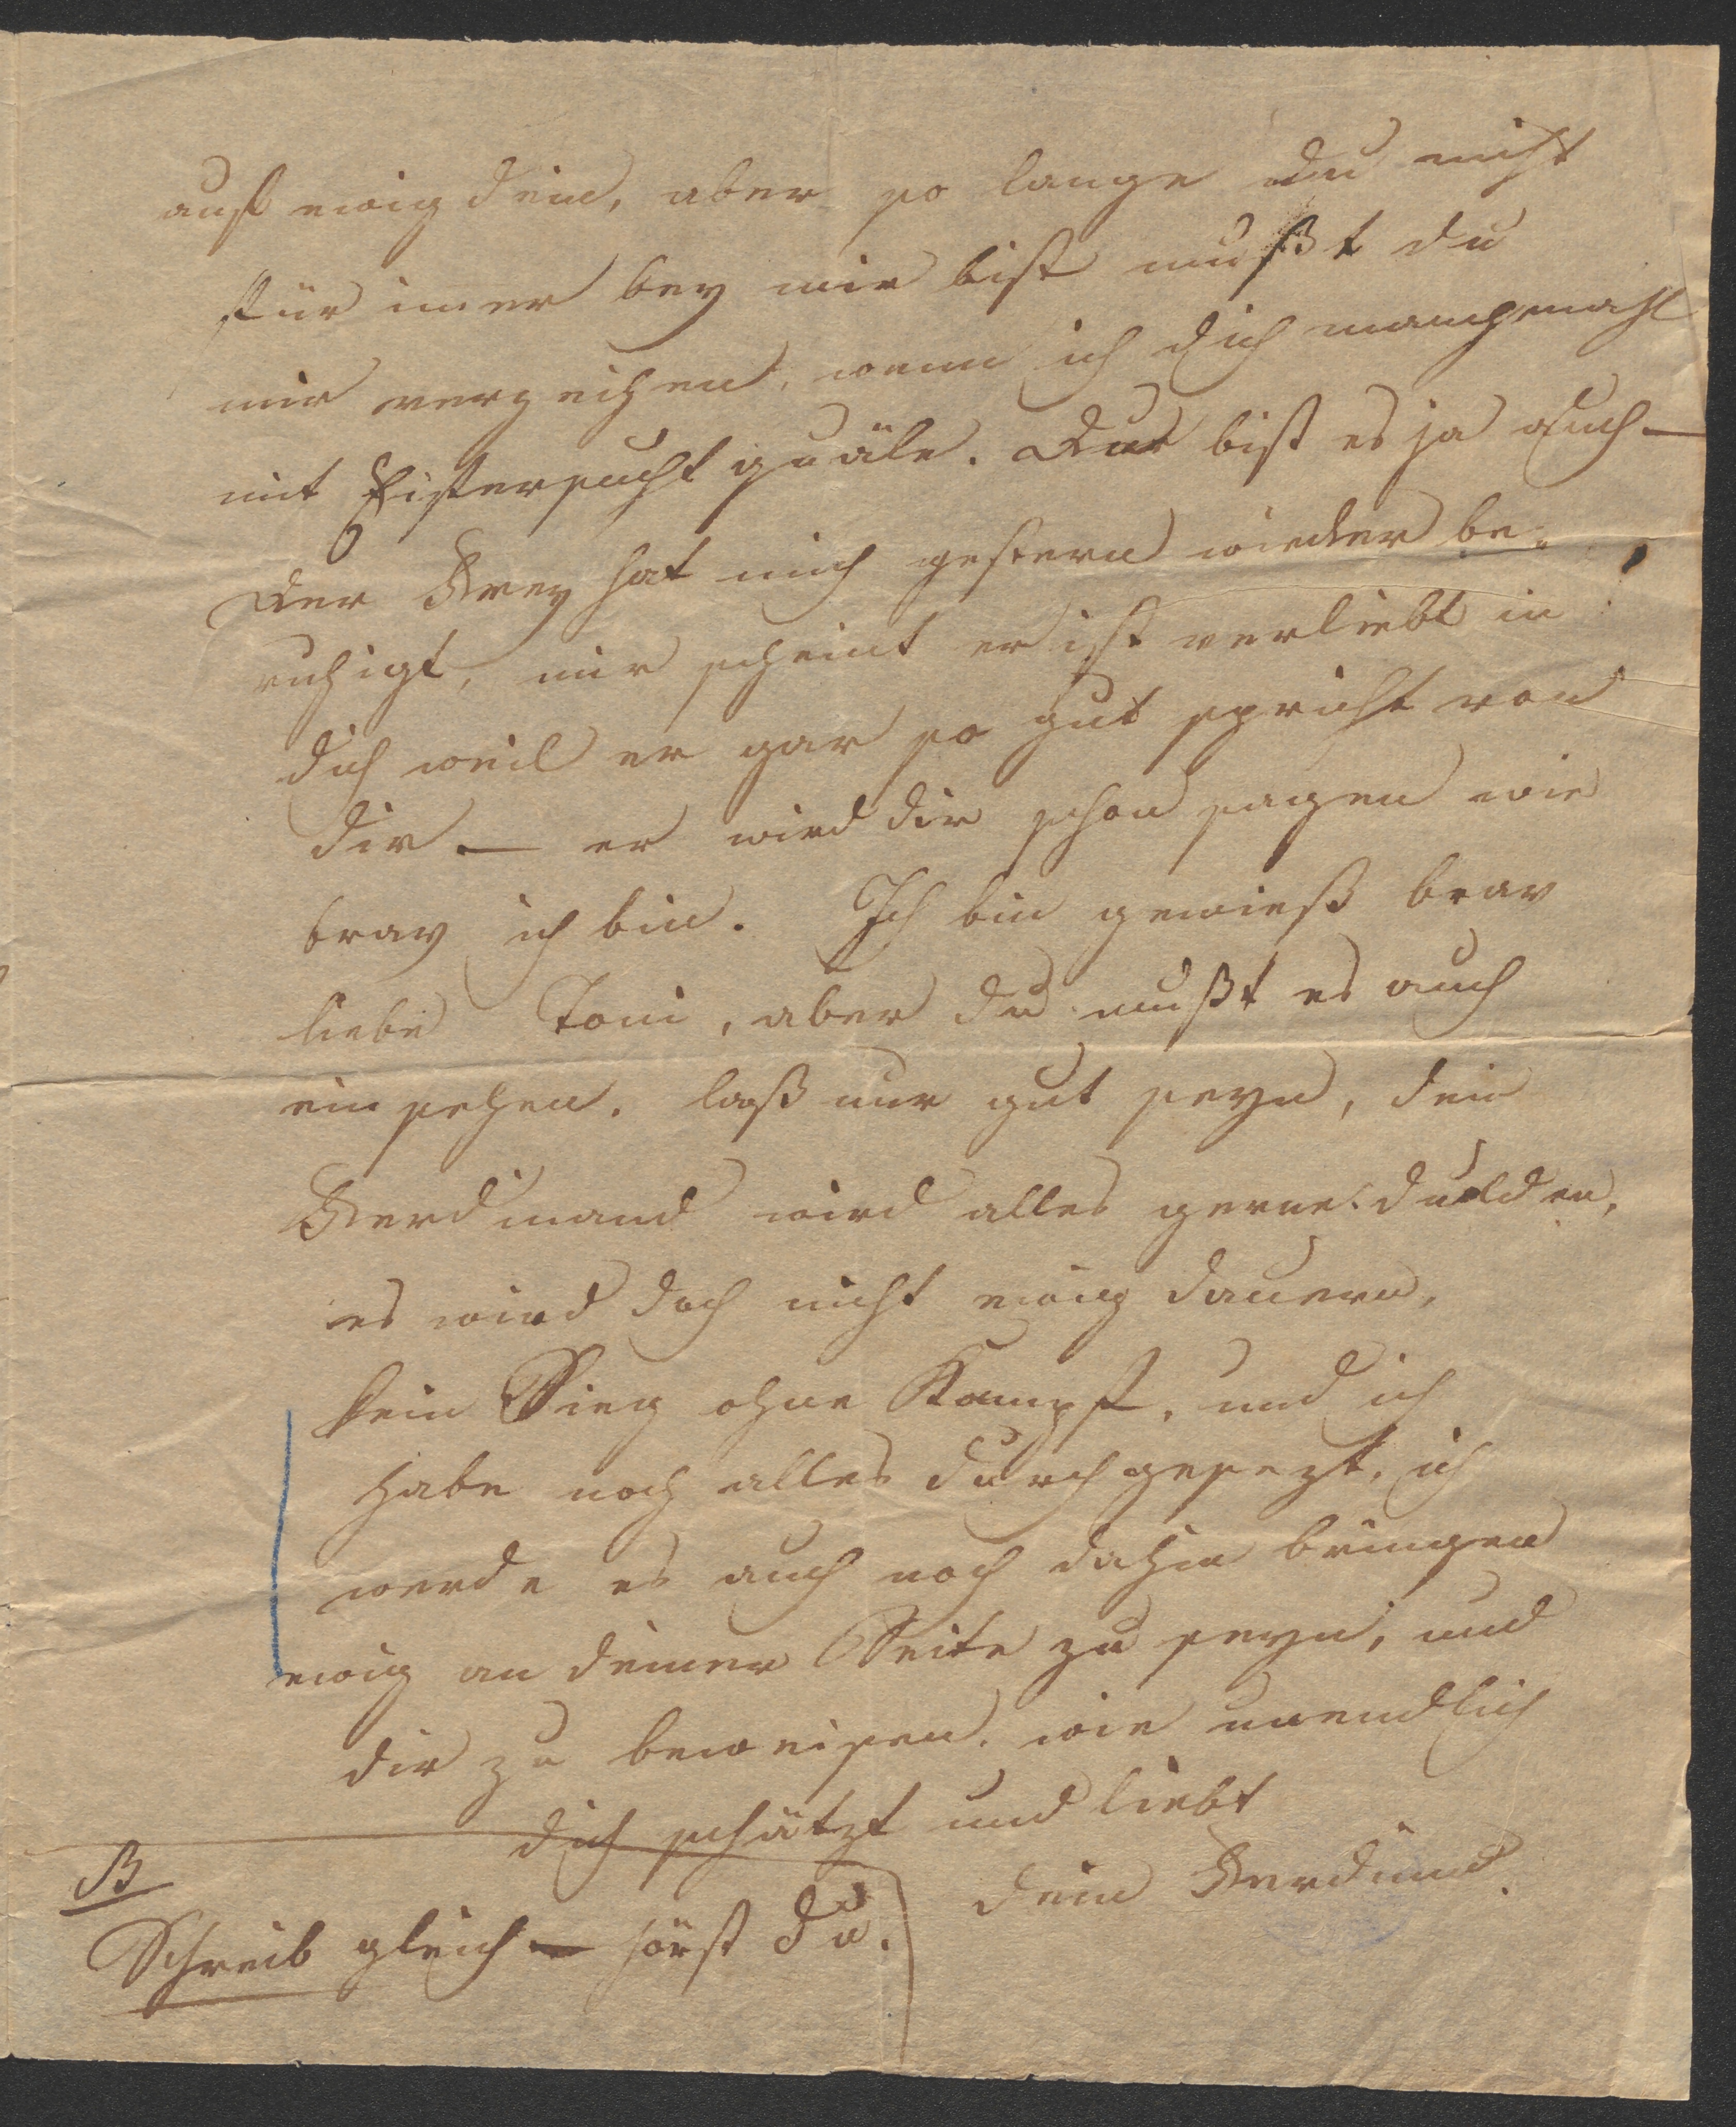 auf ewig dein, aber so lange du nicht
für imer bey mir bist mußt du
mir verzeihen, wenn ich dich manchmahl
mit Eifersucht quäle. Du bist es ja auch —
Der Frey hat mich gestern wieder be-
ruhigt, mir scheint er ist verliebt in
dich weil er gar so gut spricht von
dir — er wird dir schon sagen wie
brav ich bin. Ich bin gewieß brav
liebe Toni, aber du mußt es auch
ein sehen. laß nur gut seyn, dein
Ferdinand wird alles gerne dulden,
es wird doch nicht ewig dauern,
kein Sieg ohne Kampf, und ich
habe noch alles durchgesezt, ich
werde es auch noch dahin bringen
ewig an deiner Seite zu seyn, und
dir zu beweisen, wie unendlich
dich schätzt und liebt
dein Ferdinand.
Schreib gleich — hörst du.